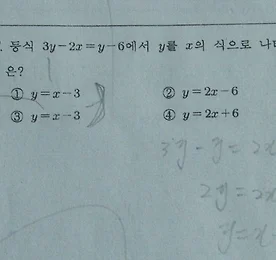 등식 3y-2x=y-6에서 y를 x의 식으로
은?
① y=x-3
② y=2x-6
③ y=-x-3
④ y=2x+6
3y-y=2x
2y=2x
y=x-